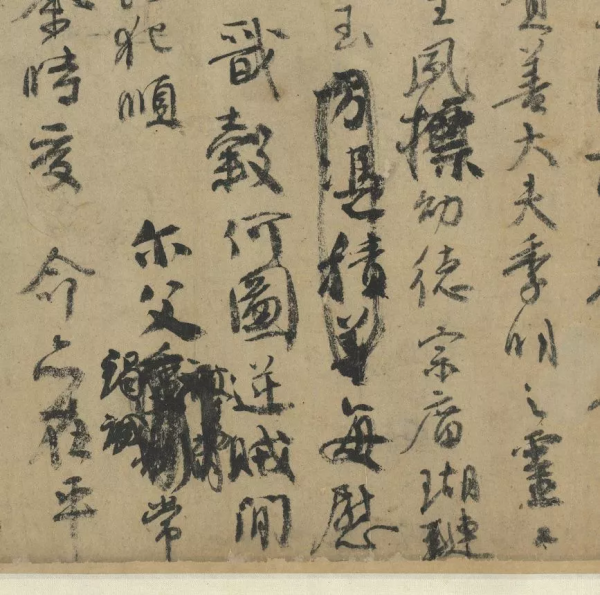 善大夫季明之靈曰
生夙標幼德宗廟瑚璉
玉方憑積善每慰
戩穀何圖逆賊間
犯順尓父竭誠常
余時受命亦在平